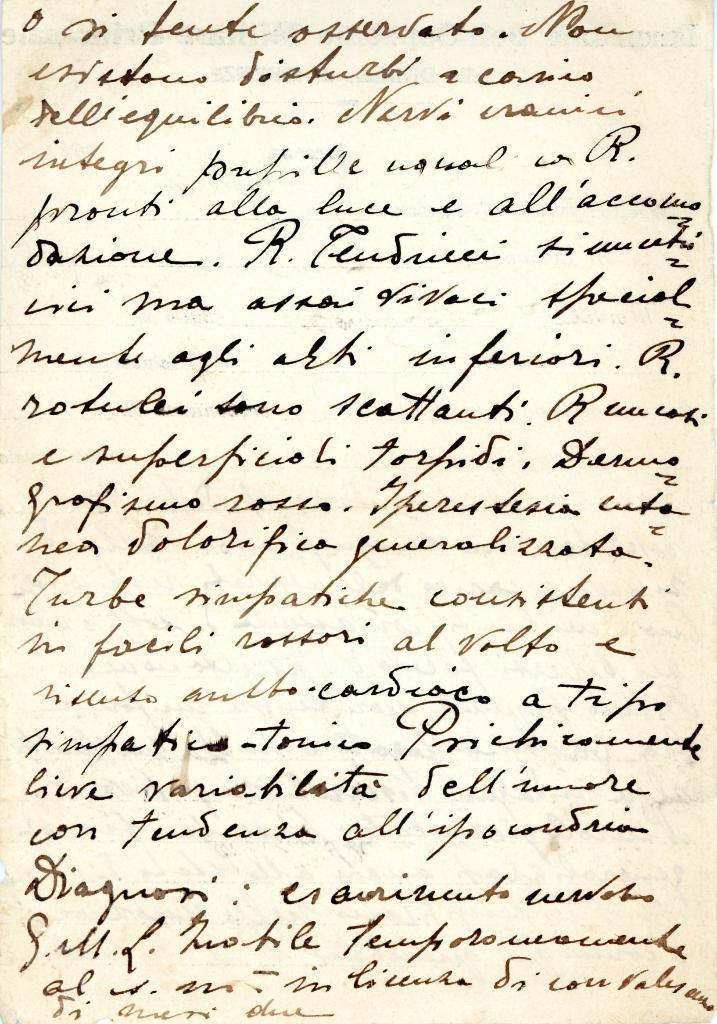 o si sente osservato. Non
esistono disturbi a carico
dell'equilibrio. Nervi cranici
integri pupille uguali con R.
pronti alla luce e all'accomo=
dazione. R. Tendinei simmetri=
ici ma assai vivaci special=
mente agli arti inferiori. R.
rotulei sono scattanti. R mucosi
e superficiali torpidi. Dermo=
grafismo rosso. Iperestesia cuta=
nea dolorifica generalizzata.
Turbe simpatiche consistenti
in facili rossori al volto e
oculo-cardiaco a tipo
simpatico-tonico Psichicamente
lieve variabilità dell'umore
con tendenza all'ipocondria
Diagnosi: esaurimento nervoso
G.M.L. Inabile temporaneamente
al s. m. in licenza di convalescenza
di mesi due